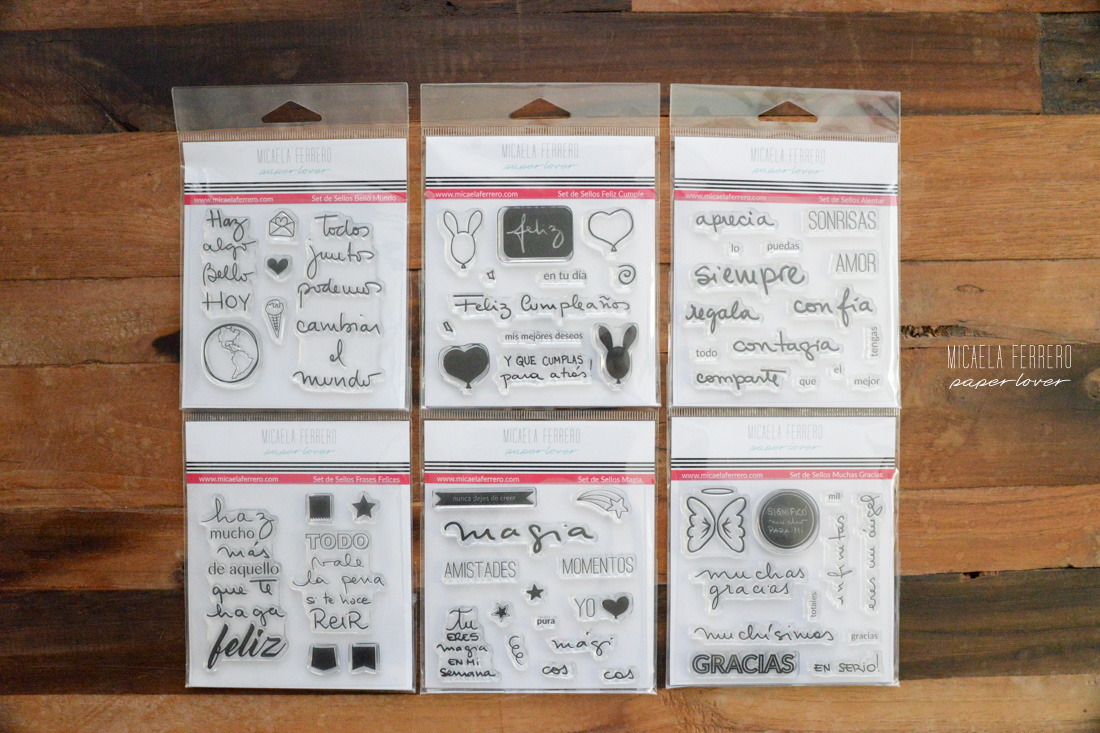 MICAELA FERRERO
paper lover
www.micaelaferrero.com Set de Sellos Bello Mundo
Haz
algo
Bello
HOY
Todos
juntos
podemos
cambiar
el
mundo
MICAELA FERRERO
paper lover
www.micaelaferrero.com Set de Sellos Feliz Cumple
feliz
en tu día
Feliz Cumpleaños
mis mejores deseos
Y QUE CUMPLAS
para atrás!
MICAELA FERRERO
paper lover
www.micaelaferrero.com Set de Sellos Alentar
aprecia SONRISAS
lo puedas
siempre AMOR
regala confía
todo contagia tengas
comparte que el mejor
MICAELA FERRERO
paper lover
MICAELA FERRERO
paper lover
www.micaelaferrero.com Set de Sellos Frases Felices
haz
mucho
más
de aquello
que TE
haga
feliz
TODO
vale
la pena
si te hace
ReíR
MICAELA FERRERO
paper lover
www.micaelaferrero.com Set de Sellos Magia
nunca dejes de creer
magia
AMISTADES MOMENTOS
YO
pura
tu
ERES
magia
EN MI
semana
mági
cos cas
MICAELA FERRERO
paper lover
www.micaelaferrero.com Set de Sellos Muchas Gracias
SIGNIFICO
mucho
PARA MI
mil
infinitas
eres mi ángel
muchas
gracias
totales
muchísimas gracias
GRACIAS EN SERIO!